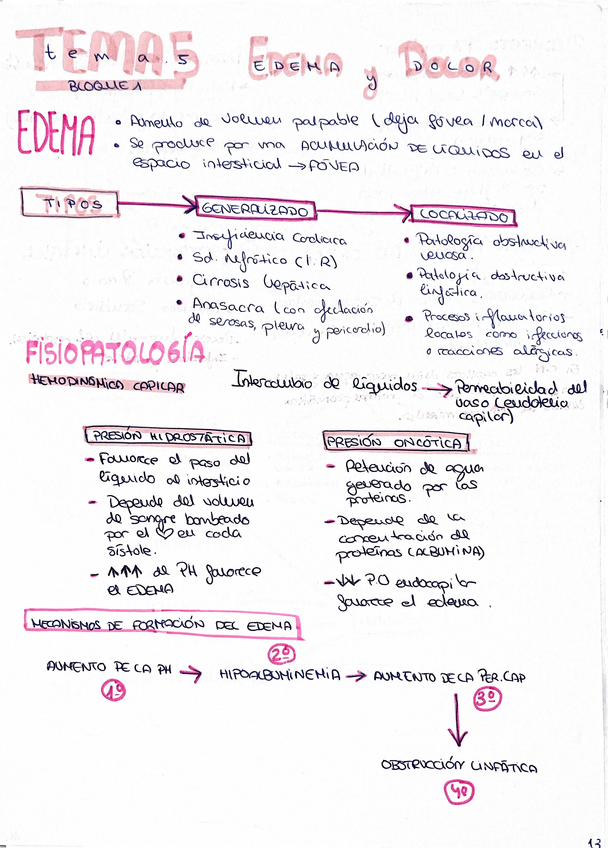 TEMA 5
tema.5
EDEMA y DOLOR
BLOQUE 1
EDEMA
• Aumento de volumen palpable (deja fóvea / marca)
• Se produce por una ACUMULACIÓN DE LÍQUIDOS en el
espacio intersticial → FÓVEA
TIPOS
GENERALIZADO
• Insuficiencia Cardiaca
• Sd. Nefrótico (I.R)
• Cirrosis hepática
• Anasacra (con afectación
de serosas, pleura y pericardio)
LOCALIZADO
• Patología obstructiva
venosa.
• Patología obstructiva
linfática.
• Procesos inflamatorios
locales como infecciones
o reacciones alérgicas.
FISIOPATOLOGÍA
HEMODINÁMICA CAPILAR
Intercambio de líquidos → Permeabilidad del
vaso (endotelio
capilar)
PRESIÓN HIDROSTÁTICA
- Favorece el paso del
líquido al intersticio
- Depende del volumen
de sangre bombeado
por el ♡ en cada
sístole.
- ↑↑↑ de PH favorece
el EDEMA
PRESIÓN ONCÓTICA
- Retención de agua
generado por las
proteínas.
- Depende de la
concentración de
proteínas (ALBÚMINA)
- ↓↓ P.O endocapilar
favorece el edema.
MECANISMOS DE FORMACIÓN DEL EDEMA
AUMENTO DE LA PH → HIPOALBUMINEMIA → AUMENTO DE LA PER.CAP
1º
2º
3º
OBSTRUCCIÓN LINFÁTICA
4º
13